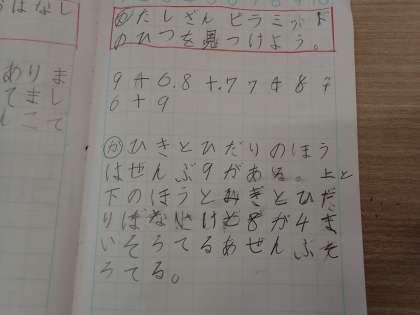 はなし
ありま
てまし
んこて
めたしざんピラミッド
のひつを見つけよう。
9 4 6.8 +.7 7 4 8 7
6 + 9
か ひきとひだりのほう
はぜんぶ9がある。上と
下のほうとみぎとひだ
りはないけど8が4ま
いそろてるあぜんぶそ
ろてる。